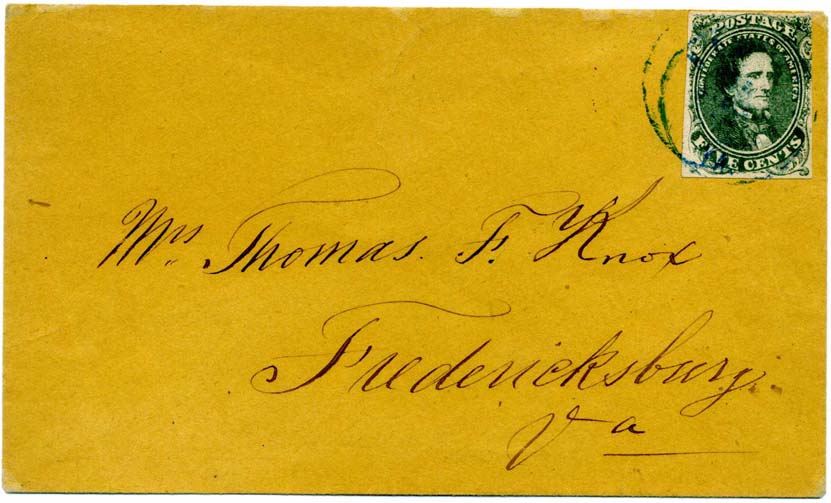 POSTAGE
CONFEDERATE STATES OF AMERICA
FIVE CENTS
Mrs. Thomas. F. Knox
Fredericksburg
Va